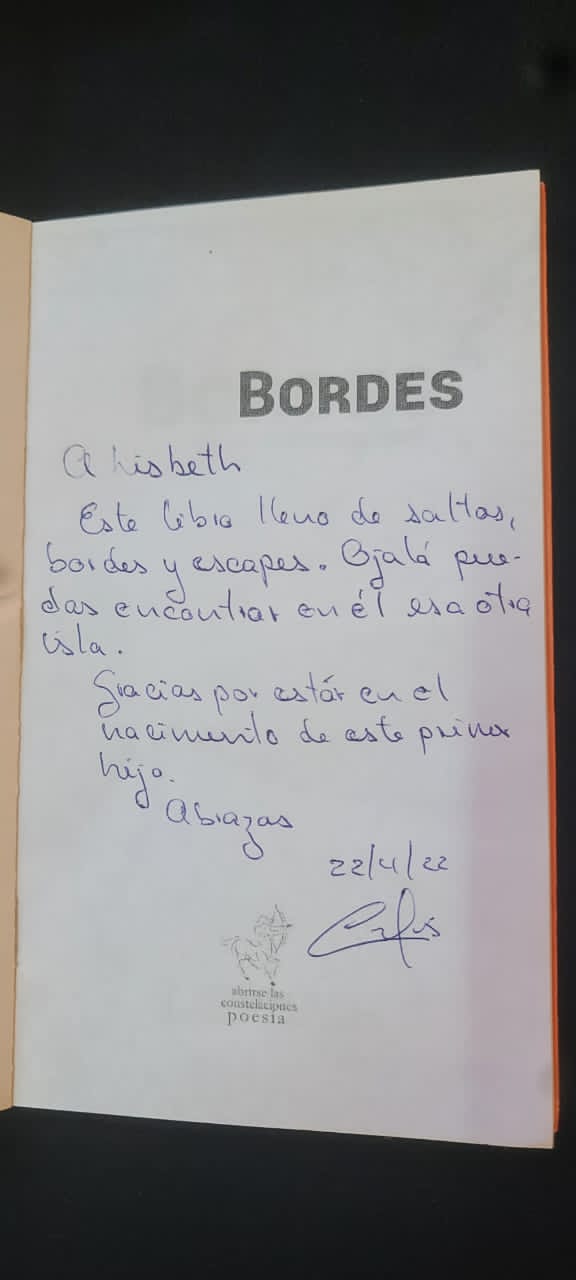 BORDES
A Lisbeth
Este libro lleno de saltos,
bordes y escapes. Ojalá pue-
das encontrar en él esa ótra
isla.
Gracias por estár en el
nacimiento de este primer
hijo.
Abrazos
22/4/22
abrirse las
constelaciones
poesía